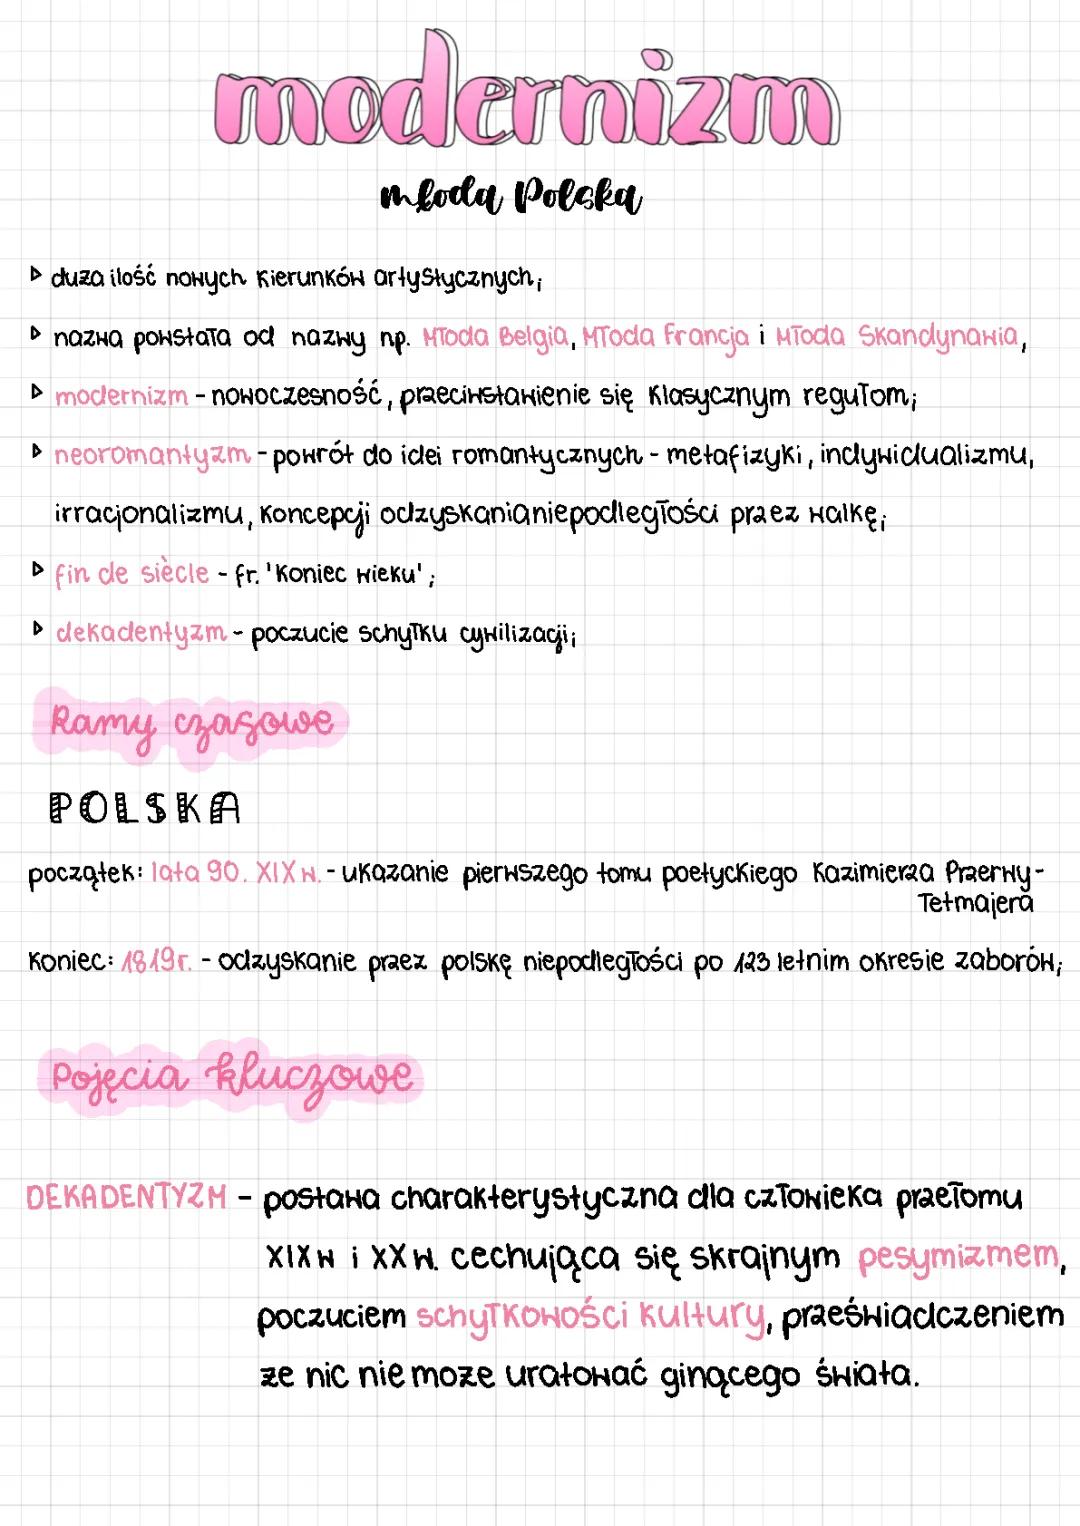 modernizm
młoda Polska
▹ duża ilość nowych kierunków artystycznych;
▹ nazwa powstała od nazwy np. Młoda Belgia, Młoda Francja i Młoda Skandynawia,
▹ modernizm - nowoczesność, przeciwstawienie się klasycznym regułom;
▹ neoromantyzm - powrót do idei romantycznych - metafizyki, indywidualizmu,
irracjonalizmu, koncepcji odzyskania niepodległości przez walkę;
▹ fin de siècle - fr. 'koniec wieku';
▹ dekadentyzm - poczucie schyłku cywilizacji;
Ramy czasowe
POLSKA
początek: lata 90. XIX w. - ukazanie pierwszego tomu poetyckiego Kazimierza Przerwy-
Tetmajera
Koniec: 1819r. - odzyskanie przez polskę niepodległości po 123 letnim okresie zaborów;
Pojęcia kluczowe
DEKADENTYZM - postawa charakterystyczna dla człowieka przełomu
XIX w i XX w. cechująca się skrajnym pesymizmem,
poczuciem schyłkowości kultury, przeświadczeniem
że nic nie może uratować ginącego świata.